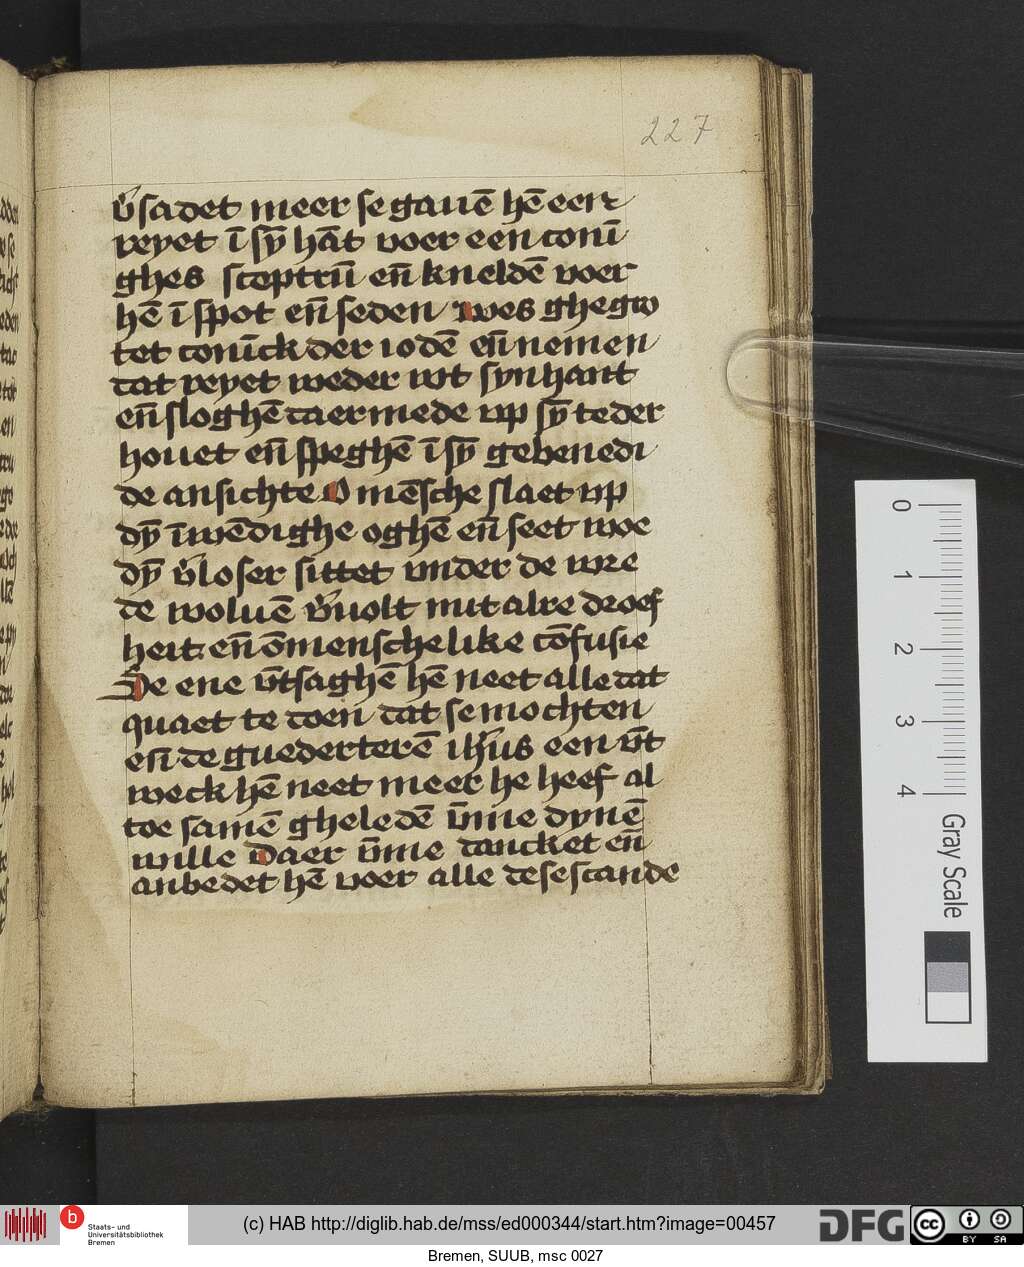 227
v̄sadet meer se gauē hē een
reyet ī sȳ hāt voer een conī
ghes sceptrū en̄ kneldē voer
hē ī spot en̄ seden wes ghegro
tet conīck der iodē en̄ nemen
dat reyet weder wt syn hant
en̄ sloghē daer mede vp sȳ teder
houet en̄ speghē ī sȳ gebenedi
de ansichte O mēsche slaet vp
dȳ īwēdighe oghē en̄ seet woe
dȳ v̄loser sittet vnder de wre
de woluē v̄uolt mit alre droef
heit en̄ ōmenschelike cōfusie
De ene v̄tsaghē hē neet alle dat
quaet te doen dat se mochten
en̄ de guederterē ih̄us een v̄t
weck hē neet meer he heef al
toe samē gheledē v̄me dynē
wille Daer v̄me dancket en̄
anbedet hē voer alle dese scande
0
1
2
3
4
Gray Scale
b
Staats- und
Universitätsbibliothek
Bremen
(c) HAB http://diglib.hab.de/mss/ed000344/start.htm?image=00457
DFG
cc BY SA
Bremen, SUUB, msc 0027